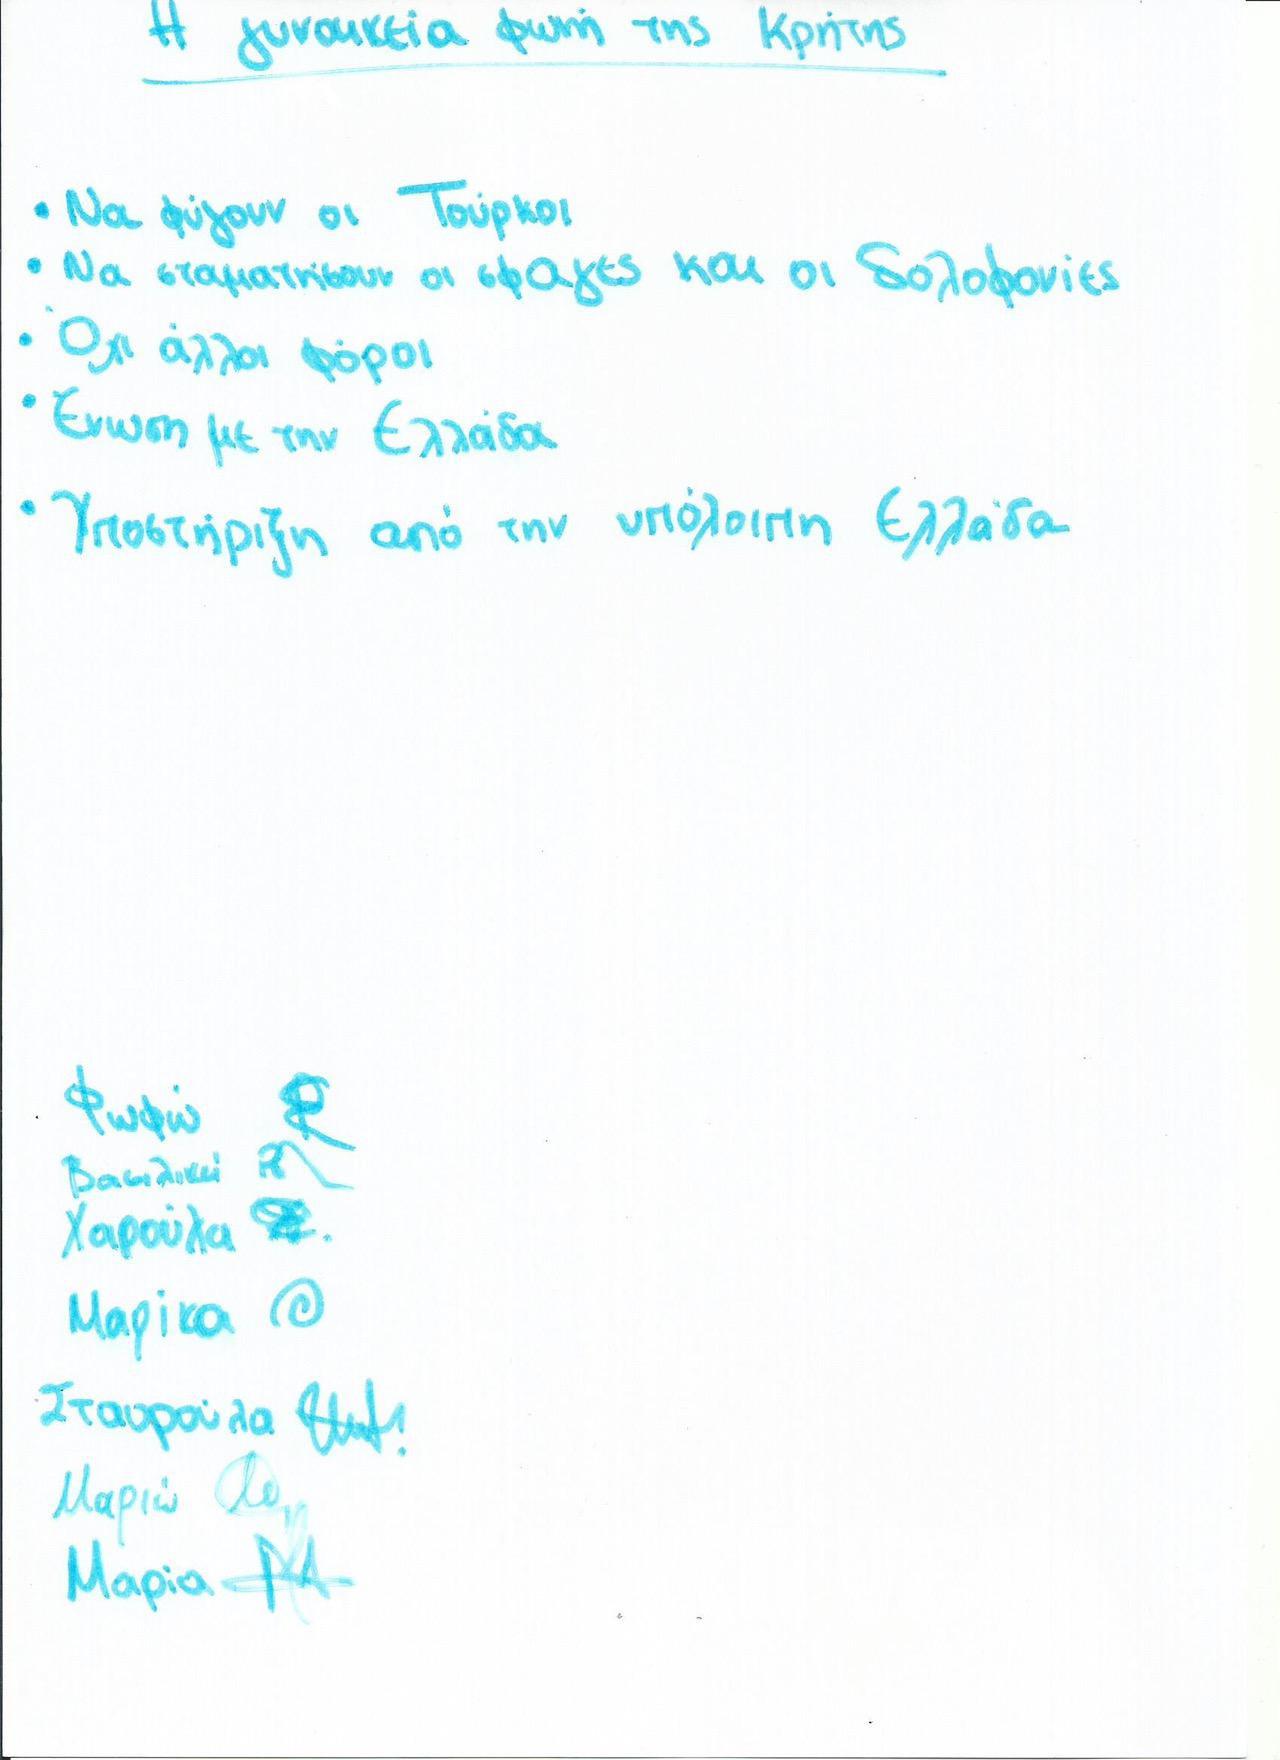 Η γυναικεία φωνή της Κρήτης
• Να φύγουν οι Τούρκοι
• Να σταματήσουν οι σφαγες και οι δολοφονίες
• Όχι άλλοι φόροι
• Ένωση με την Ελλάδα
• Υποστήριξη από την υπόλοιπη Ελλάδα
Φωφώ
Βασιλική
Χαρούλα
Μαρίκα
Σταυρούλα
Μαριώ
Μαρία